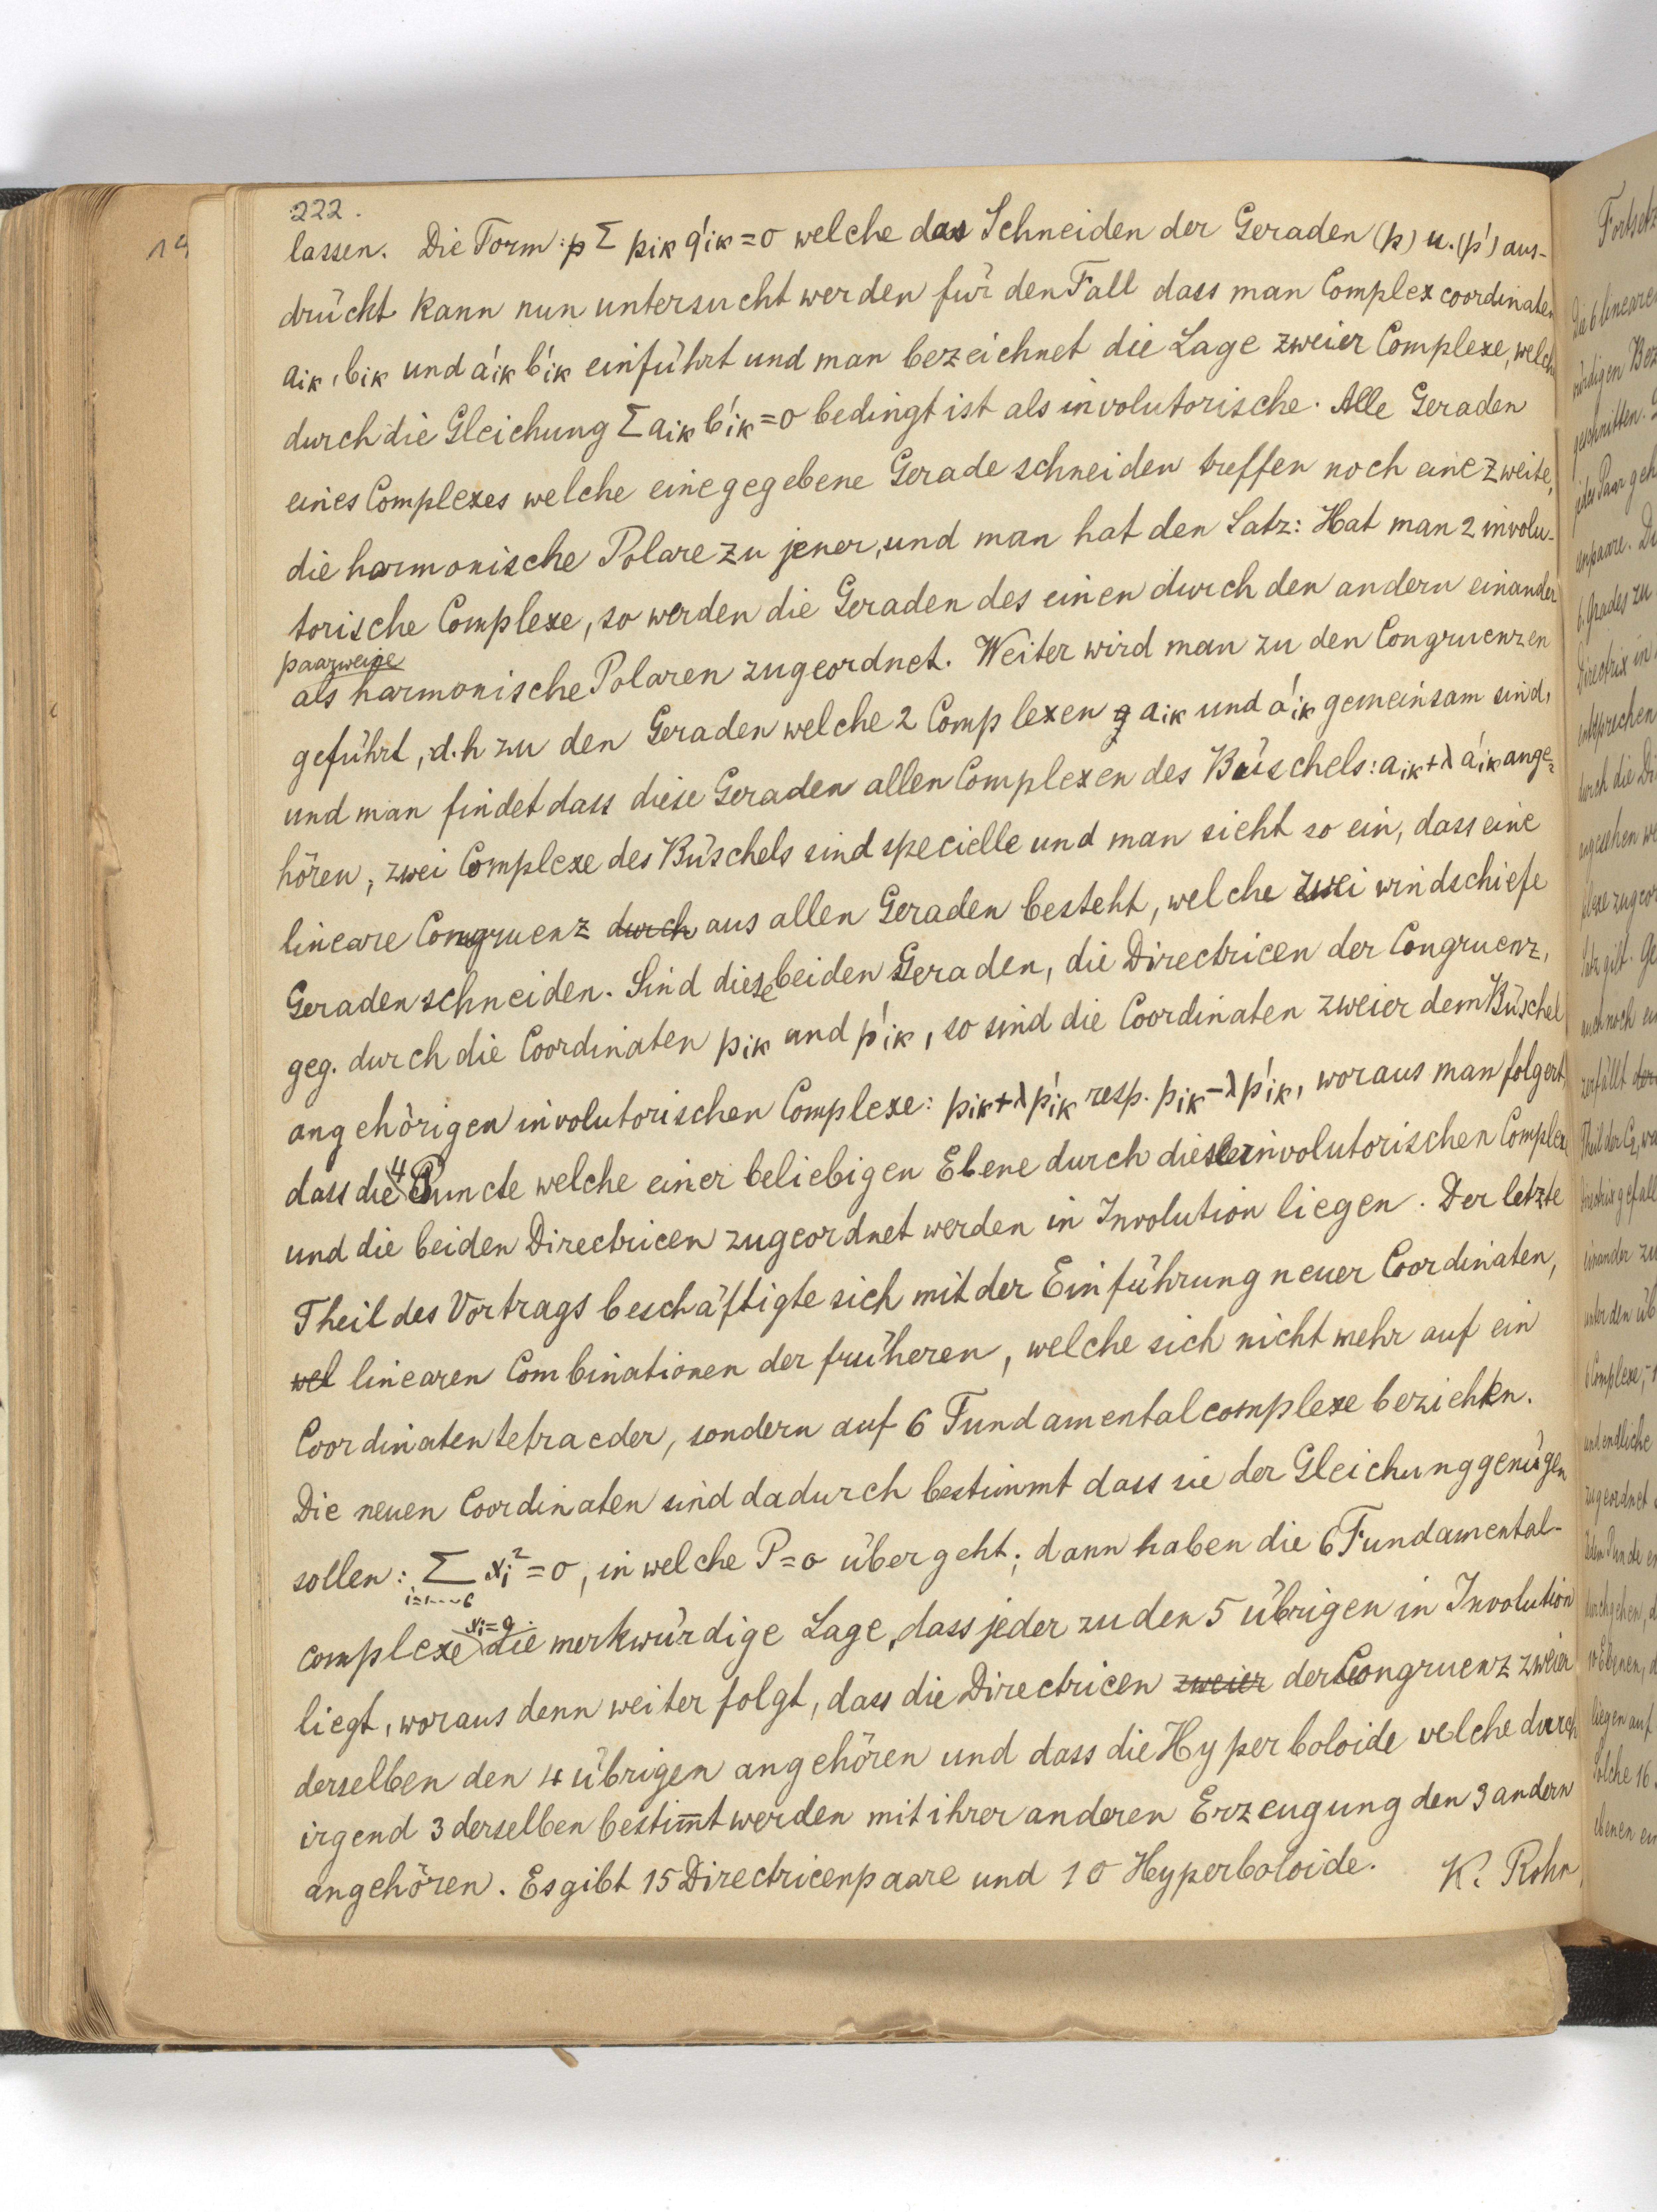 222.
lassen. Die Form: p Σ pik q'ik = 0 welche das Schneiden der Geraden (p) u. (p') aus-
drückt kann nun untersucht werden für den Fall dass man Complexcoordinaten
aik, bik und a'ik b'ik einführt und man bezeichnet die Lage zweier Complexe, welche
durch die Gleichung Σ aik b'ik = 0 bedingt ist als involutorische. Alle Geraden
eines Complexes welche eine gegebene Gerade schneiden treffen noch eine zweite,
die harmonische Polare zu jener, und man hat den Satz: Hat man 2 involu-
torische Complexe, so werden die Geraden des einen durch den andern einander
paarweise
als harmonische Polaren zugeordnet. Weiter wird man zu den Congruenzen
geführt, d.h zu den Geraden welche 2 Complexen aik und a'ik gemeinsam sind,
und man findet dass diese Geraden allen Complexen des Büschels: aik + λ a'ik ange=
hören; zwei Complexe des Büschels sind specielle und man sieht so ein, dass eine
lineare Congruenz durch aus allen Geraden besteht, welche zwei windschiefe
Geraden schneiden. Sind diese beiden Geraden, die Directricen der Congruenz,
geg. durch die Coordinaten pik und p'ik, so sind die Coordinaten zweier dem Büschel
angehörigen involutorischen Complexe: pik + λ p'ik resp. pik − λ p'ik, woraus man folgert,
dass die 4 Puncte welche einer beliebigen Ebene durch diese involutorischen Complexe
und die beiden Directricen zugeordnet werden in Involution liegen. Der letzte
Theil des Vortrags beschäftigte sich mit der Einführung neuer Coordinaten,
wel linearen Combinationen der früheren, welche sich nicht mehr auf ein
Coordinatentetraeder, sondern auf 6 Fundamentalcomplexe beziehen.
Die neuen Coordinaten sind dadurch bestimmt dass sie der Gleichung genügen
sollen: Σ xi² = 0, in welche P = 0 übergeht; dann haben die 6 Fundamental-
i=1...6
xi=0
complexe die merkwürdige Lage, dass jeder zu den 5 übrigen in Involution
liegt, woraus denn weiter folgt, dass die Directricen zweier der Congruenz zweier
derselben den 4 übrigen angehören und dass die Hyperboloide welche durch
irgend 3 derselben bestim̅t werden mit ihrer anderen Erzeugung den 3 andern
angehören. Es gibt 15 Directricenpaare und 10 Hyperboloide. K. Rohn